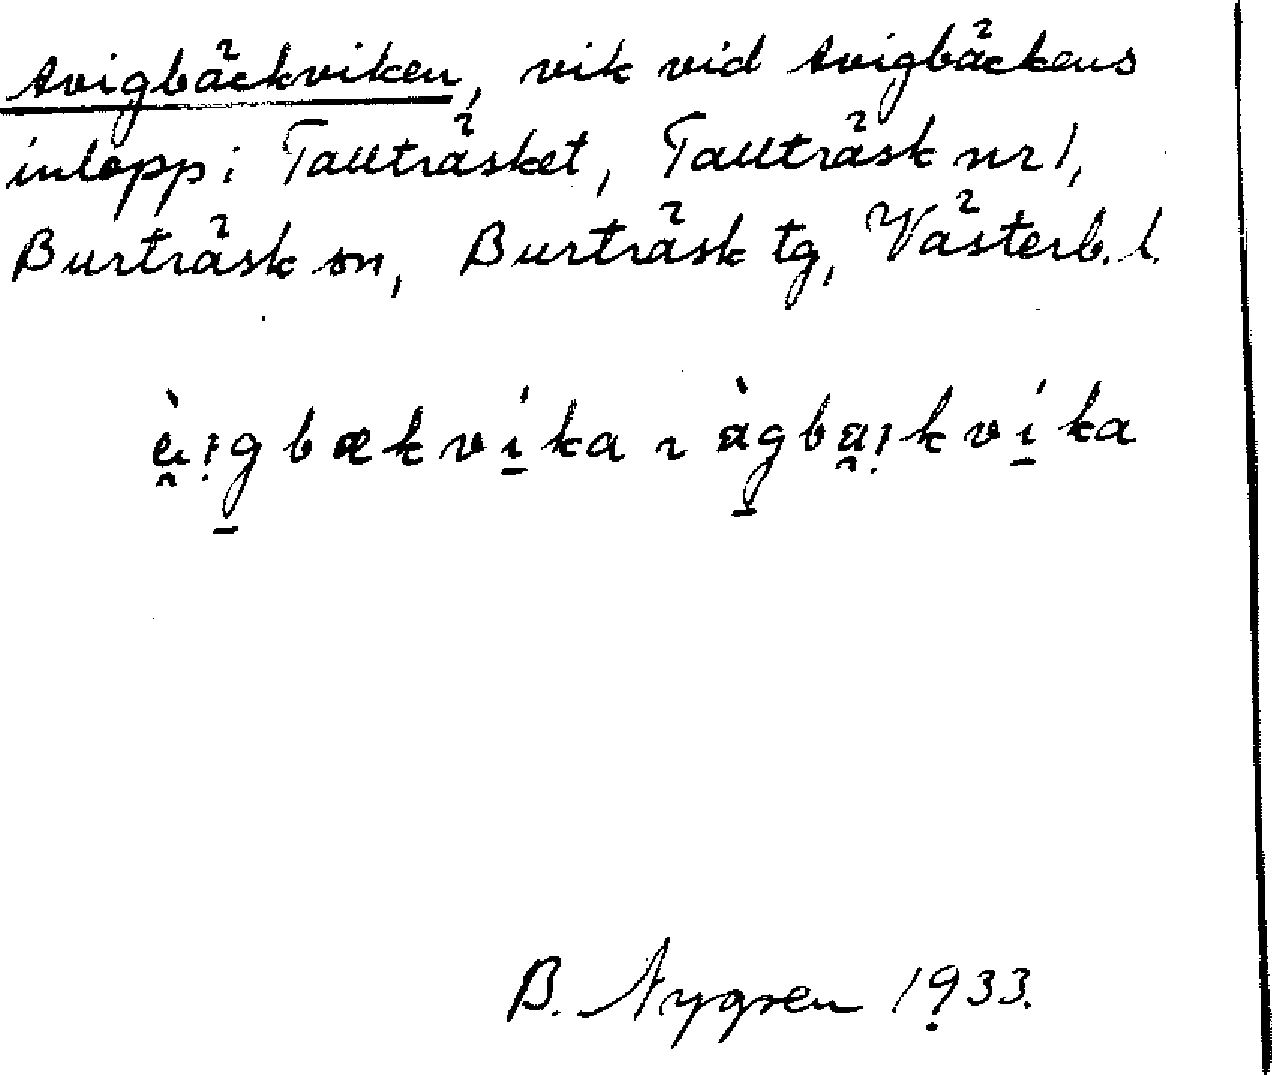 Avigbäckviken, vik vid Avigbäckens
inlopp i Tallträsket, Tallträsk nr 1,
Burträsk sn, Burträsk tg, Västerb. l.
B. Nygren 1933.